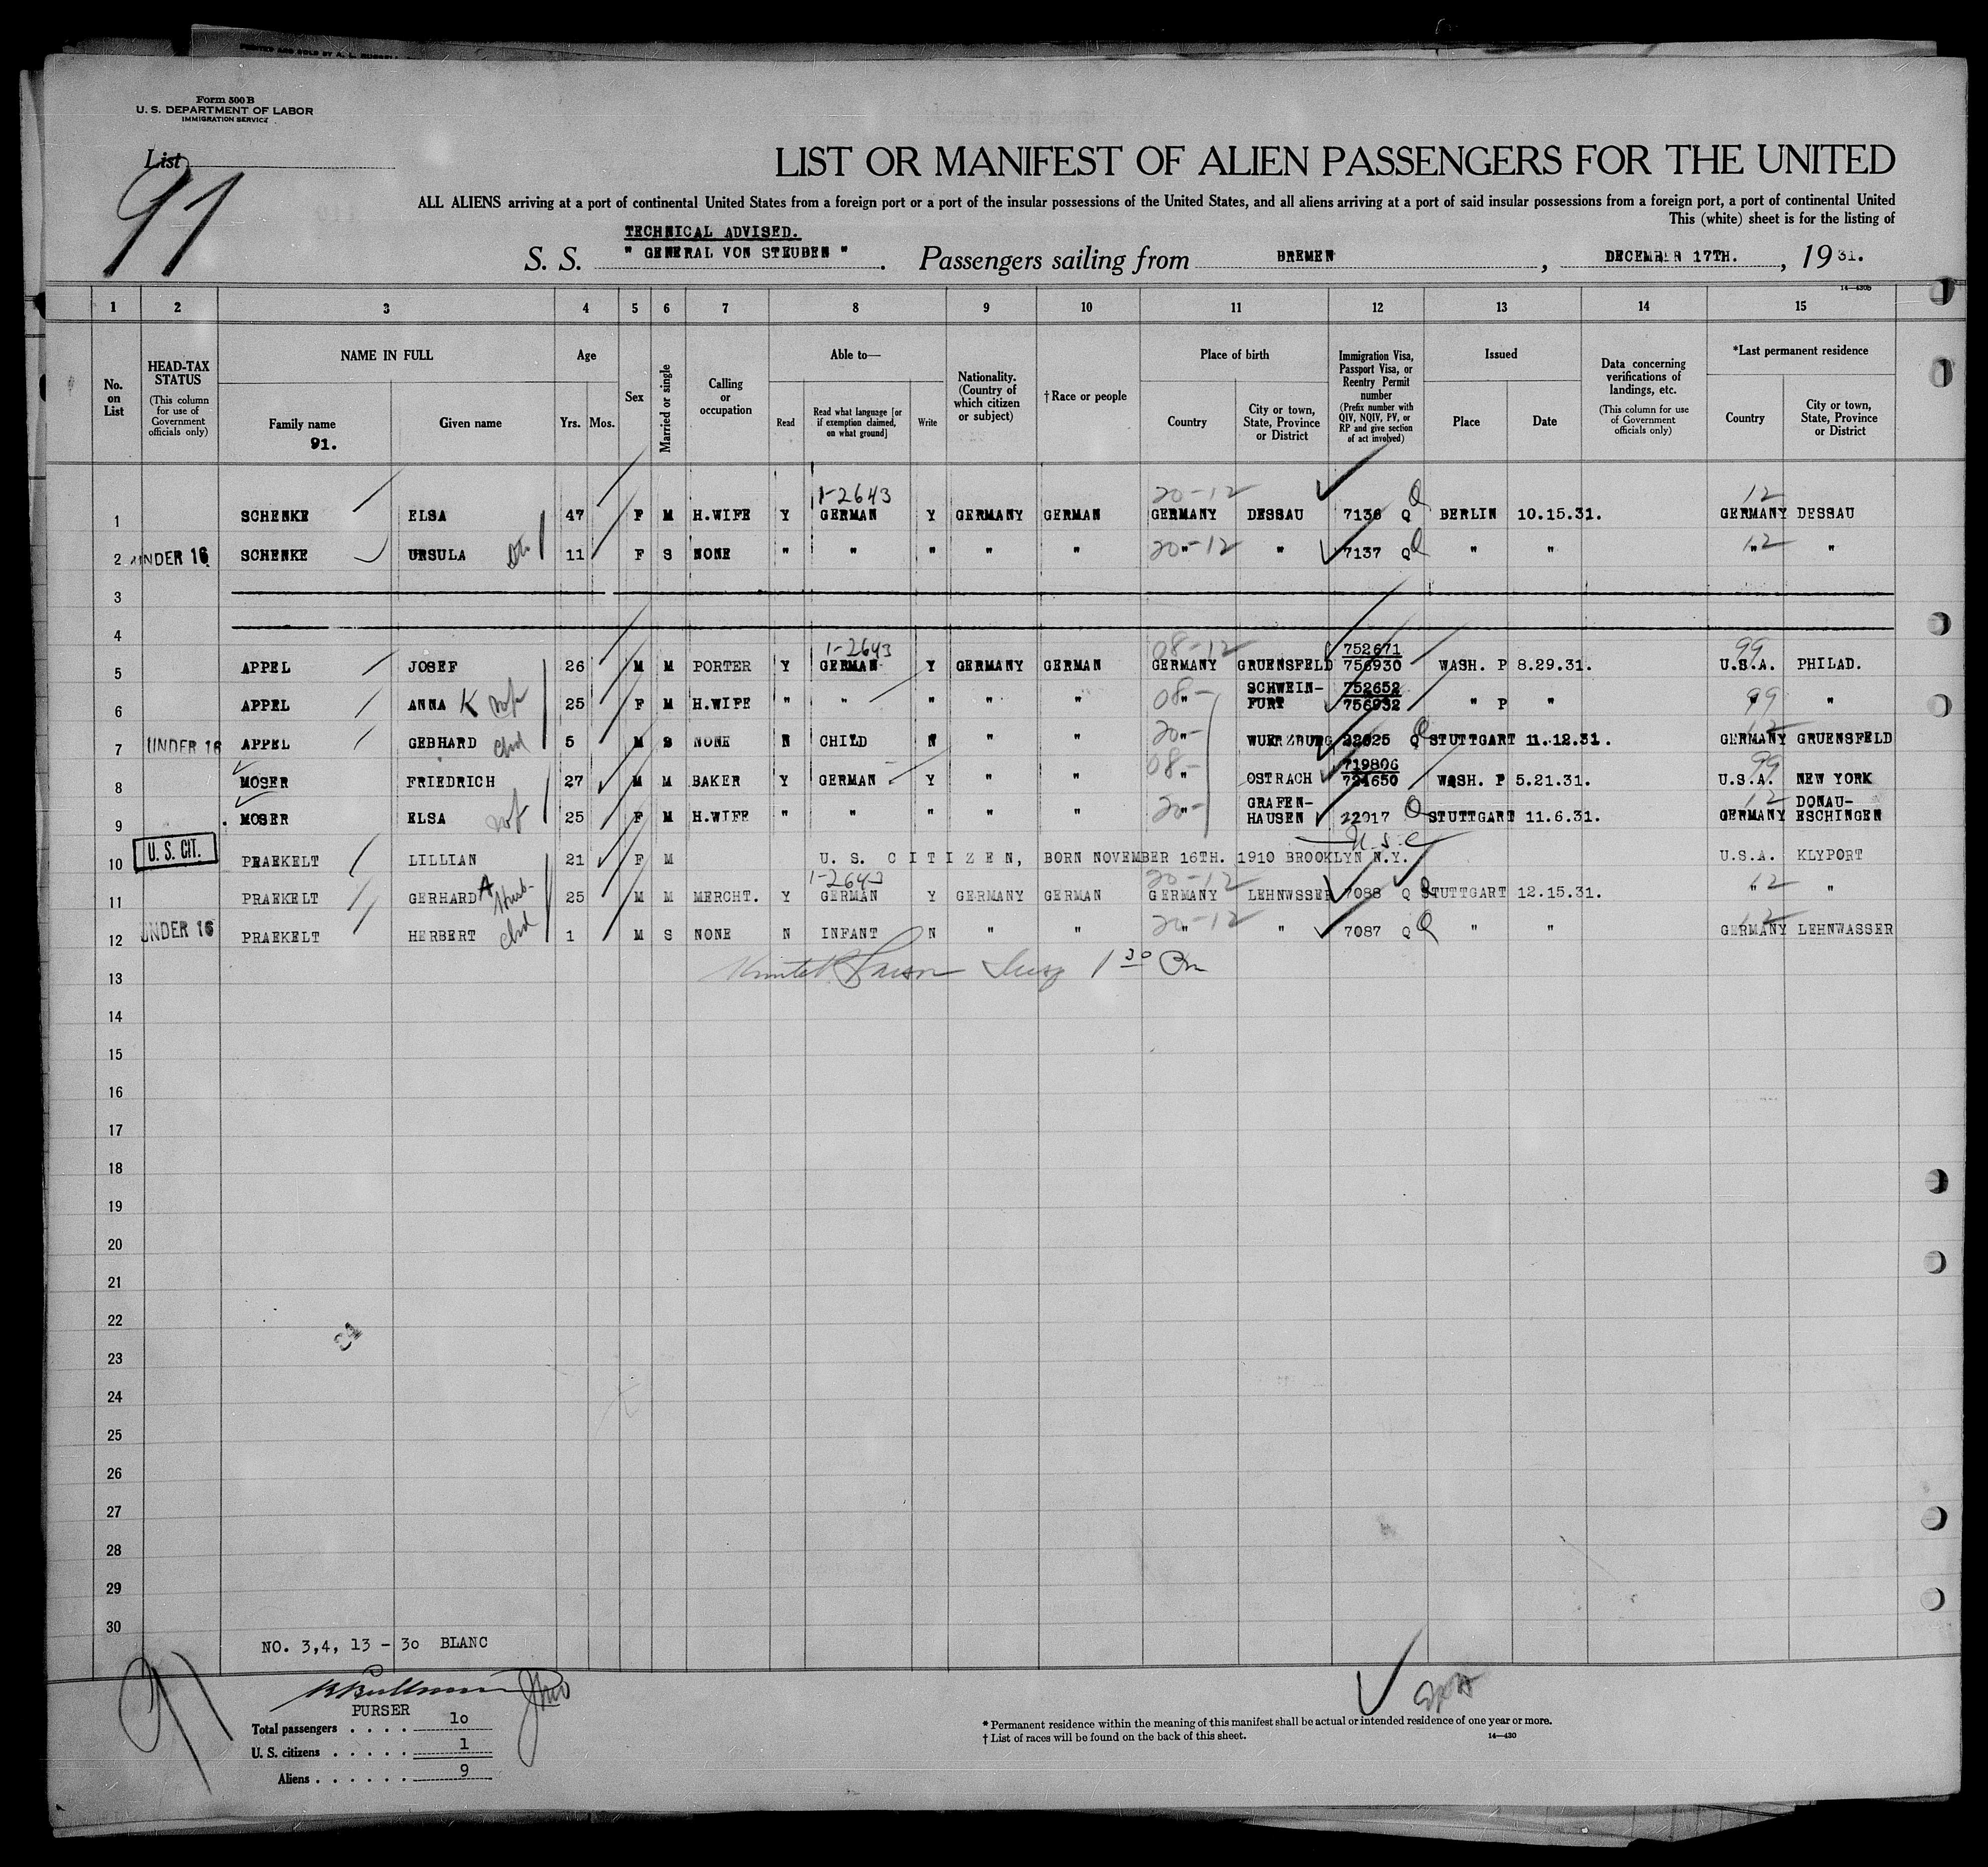 Form 500 B
U. S. DEPARTMENT OF LABOR
IMMIGRATION SERVICE
List
91
LIST OR MANIFEST OF ALIEN PASSENGERS FOR THE UNITED
ALL ALIENS arriving at a port of continental United States from a foreign port or a port of the insular possessions of the United States, and all aliens arriving at a port of said insular possessions from a foreign port, a port of continental United
This (white) sheet is for the listing of
TECHNICAL ADVISED.
S. S. " GENERAL VON STEUBEN ". Passengers sailing from BREMEN, DECEMBER 17TH., 1931.
14—430b
1 2 3 4 5 6 7 8 9 10 11 12 13 14 15
No. on List
HEAD-TAX STATUS (This column for use of Government officials only)
NAME IN FULL
Family name
91.
Given name
Age
Yrs. Mos.
Sex
Married or single
Calling or occupation
Able to—
Read
Read what language [or if exemption claimed, on what ground]
Write
Nationality. (Country of which citizen or subject)
† Race or people
Place of birth
Country
City or town, State, Province or District
Immigration Visa, Passport Visa, or Reentry Permit number (Prefix number with QIV, NQIV, PV, or RP and give section of act involved)
Issued
Place
Date
Data concerning verifications of landings, etc. (This column for use of Government officials only)
*Last permanent residence
Country
City or town, State, Province or District
1-2643 20-12 Q 12
1 SCHENKE ELSA 47 F M H.WIFE Y GERMAN Y GERMANY GERMAN GERMANY DESSAU 7136 Q BERLIN 10.15.31. GERMANY DESSAU
2 UNDER 16 SCHENKE URSULA 11 F S NONE " " " " " 20-12 " " 7137 Q Q " " 12 " "
3
4
1-2643 08-12 752671 99
5 APPEL JOSEF 26 M M PORTER Y GERMAN Y GERMANY GERMAN GERMANY GRUENSFELD 756930 WASH. P 8.29.31. U.S.A. PHILAD.
6 APPEL ANNA K wf 25 F M H.WIFE " " " " " 08- " SCHWEIN-FURT 752652 756932 " P " 99 " "
7 UNDER 16 APPEL GEBHARD chd 5 M S NONE N CHILD N " " 20- " WUERZBURG 22025 Q Q STUTTGART 11.12.31. 12 GERMANY GRUENSFELD
8 MOSER FRIEDRICH 27 M M BAKER Y GERMAN Y " " 08- " OSTRACH 719806 721650 WASH. P 5.21.31. 99 U.S.A. NEW YORK
9 MOSER ELSA wf 25 F M H.WIFE " " " " " 20- " GRAFEN-HAUSEN 22017 Q STUTTGART 11.6.31. 12 GERMANY DONAU-ESCHINGEN
U.S.C
10 U. S. CIT. PRAEKELT LILLIAN 21 F M U. S. CITIZEN, BORN NOVEMBER 16TH. 1910 BROOKLYN N.Y. U.S.A. KLYPORT
1-2643 20-12
11 PRAEKELT GERHARD A Husb- 25 M M MERCHT. Y GERMAN Y GERMANY GERMAN GERMANY LEHNWSSER 7088 Q Q STUTTGART 12.15.31. 12 " "
12 UNDER 16 PRAEKELT HERBERT chd 1 M S NONE N INFANT N " " 20-12 " " 7087 Q Q " " 12 GERMANY LEHNWASSER
13
14
15
16
17
18
19
20
21
22
23
24
25
26
27
28
29
30
NO. 3,4, 13 - 30 BLANC
91
PURSER
Total passengers . . . . 10
U. S. citizens . . . . . 1
Aliens . . . . . . 9
* Permanent residence within the meaning of this manifest shall be actual or intended residence of one year or more.
† List of races will be found on the back of this sheet.
14—430